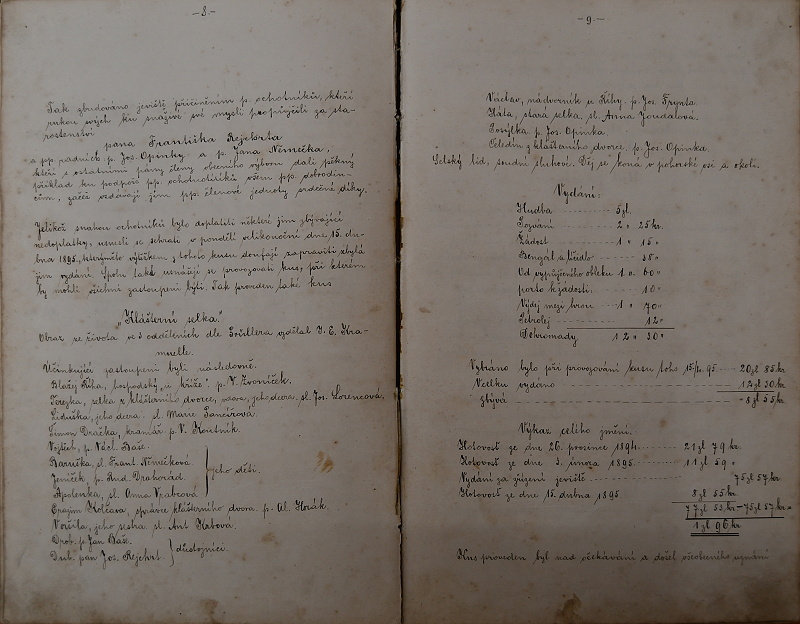 - 8.-
Tak zbudováno jeviště přičiněním p. ochotníků, kteří
rukou svých ku snaživé své mysli propůjčili za sta-
rostenství
pana Františka Rejchrta
a pp. radních p. Jos. Opinky a p. Jana Němečka,
kteří s ostatními pány členy obecního výboru dali pěkný
příklad ku podpoře pp. ochotníků všem pp. dobrodin-
cům, začež vzdávají jim pp. členové jednoty srdečné díky.
Jelikož snahou ochotníků bylo doplatiti některé jim zbývající
nedoplatky, usnesli se sehrati v pondělí velikonoční dne 15. du-
bna 1895, kterýmžto výtěžkem z tohoto kusu doufají zapraviti zbylá
jim vydání. Spolu také usnášejí se provozovati kus, při kterém
by mohli všichni zastoupeni býti. Tak proveden také kus
„Klášterní selka."
Obraz ze života ve 3 odděleních dle vzdělal J. E. Kra-
muelle.
Účinkující zastoupeni byli následovně.
Blažej Říha, hospodský „u kříže" p. V. Zvoníček.
Terezka, selka z klášterního dvorce, vdova, jeho dcera sl. Jos. Lorencová.
Liduška, jeho dcera sl. Marie Tancířová.
Šimon Dračka, kramář p. V. Koutník.
Vojtěch, p. Václ. Baše.
Baruška, sl. Frant. Němečková
Jeníček, p. Rud. Drahorád
Apolenka, sl. Anna Vrabcová
jeho děti.
Erazim Kolčava, správce klášterního dvora p. Al. Horák.
Voršila, jeho sestra sl. Ant. Krbová.
Drob. p. Jan Baše.
Dub. pan Jos. Rejchrt.
důstojníci.
- 9.-
Václav, nádvorník u Říhy. p. Jos. Frynta.
Káča, stará selka, sl. Anna Joudalová.
Posýlka p. Jos. Opinka.
Čeledín z klášterního dvorce, p. Jos. Opinka.
Selský lid, soudní sluhové. Děj se koná v pohorské vsi a okolí.
Vydání:
Hudba 5 zl.
Pozvání 2 " 25 kr.
Žádost 1 " 15 "
Bengál a líčidlo 38 "
Od vypůjčeného obleku 1 " 60 "
porto k žádosti 10 "
Výdej mezi hrou 1 " 70 "
Petrolej 12 "
Dohromady 12 " 30 "
Vybráno bylo při provozování kusu toho 15/4. 95 20 zl 85 kr.
Vcelku vydáno 12 zl 30 kr.
Zbývá 8 zl 55 kr.
Výkaz celého jmění.
Hotovost ze dne 26. prosince 1894 21 zl 79 kr.
Hotovost ze dne 3. února 1895 11 zl 59 "
Vydání za zřízení jeviště 75 zl 57 kr.
Hotovost ze dne 15. dubna 1895 8 zl 55 kr.
77 zl 53 kr - 75 zl 57 kr.
1 zl 96 kr.
Kus proveden byl nad očekávání a došel všeobecného uznání